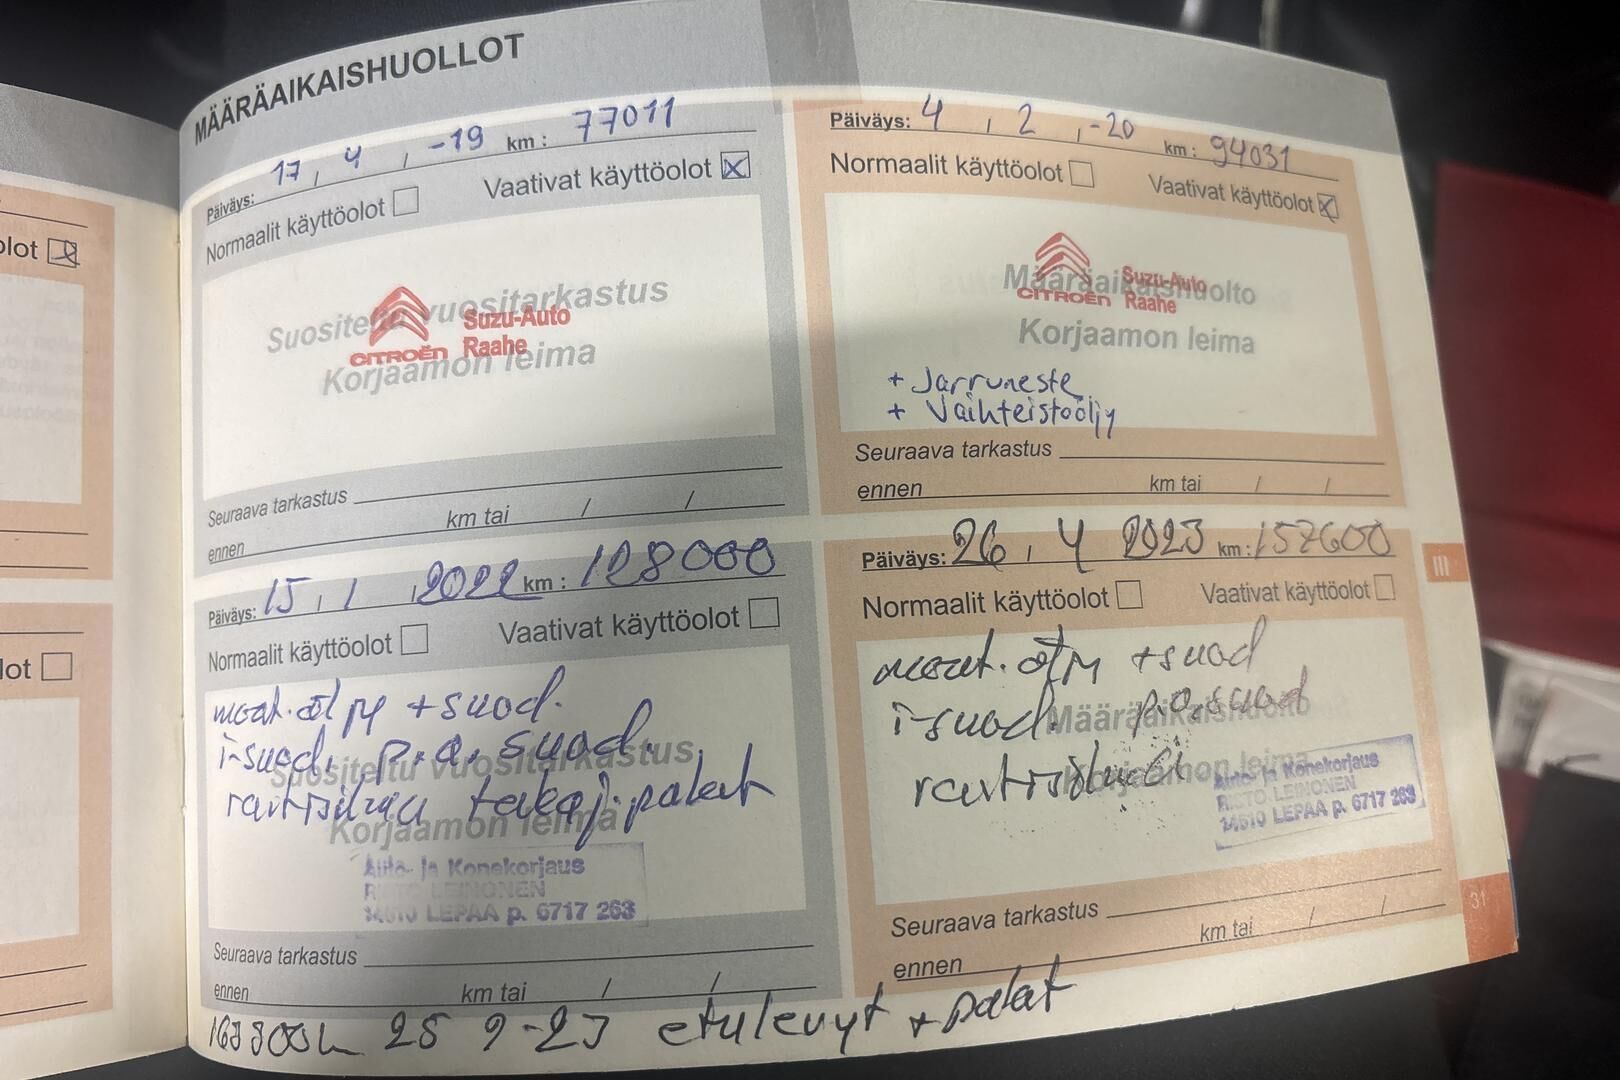 MÄÄRÄAIKAISHUOLLOT
Päiväys: 17, 4, -19 km: 77011
Normaalit käyttöolot
Vaativat käyttöolot
Suositeltu vuositarkastus
Korjaamon leima
CITROËN
Suzu-Auto
Raahe
Seuraava tarkastus
ennen km tai / /
Päiväys: 4, 2, -20 km: 94031
Normaalit käyttöolot
Vaativat käyttöolot
Määräaikaishuolto
Korjaamon leima
CITROËN
Suzu-Auto
Raahe
+ Jarruneste
+ Vaihteistoöljy
Seuraava tarkastus
ennen km tai / /
Päiväys: 15, 1, 2022 km: 128000
Normaalit käyttöolot
Vaativat käyttöolot
moot. öljy + suod.
i-suod. p.a. suod.
raitisilma takaj. palat
Suositeltu vuositarkastus
Korjaamon leima
Auto- ja Konekorjaus
RISTO LEINONEN
14610 LEPAA p. 6717 263
Seuraava tarkastus
ennen km tai / /
Päiväys: 26, 4 2023 km: 157600
Normaalit käyttöolot
Vaativat käyttöolot
moot. öljy + suod
i-suod. p.a. suod
raitisilma
Määräaikaishuolto
Korjaamon leima
Auto- ja Konekorjaus
RISTO LEINONEN
14610 LEPAA p. 6717 263
Seuraava tarkastus
ennen km tai / /
25 9-23 etulevyt + palat
olot
lot
III
31